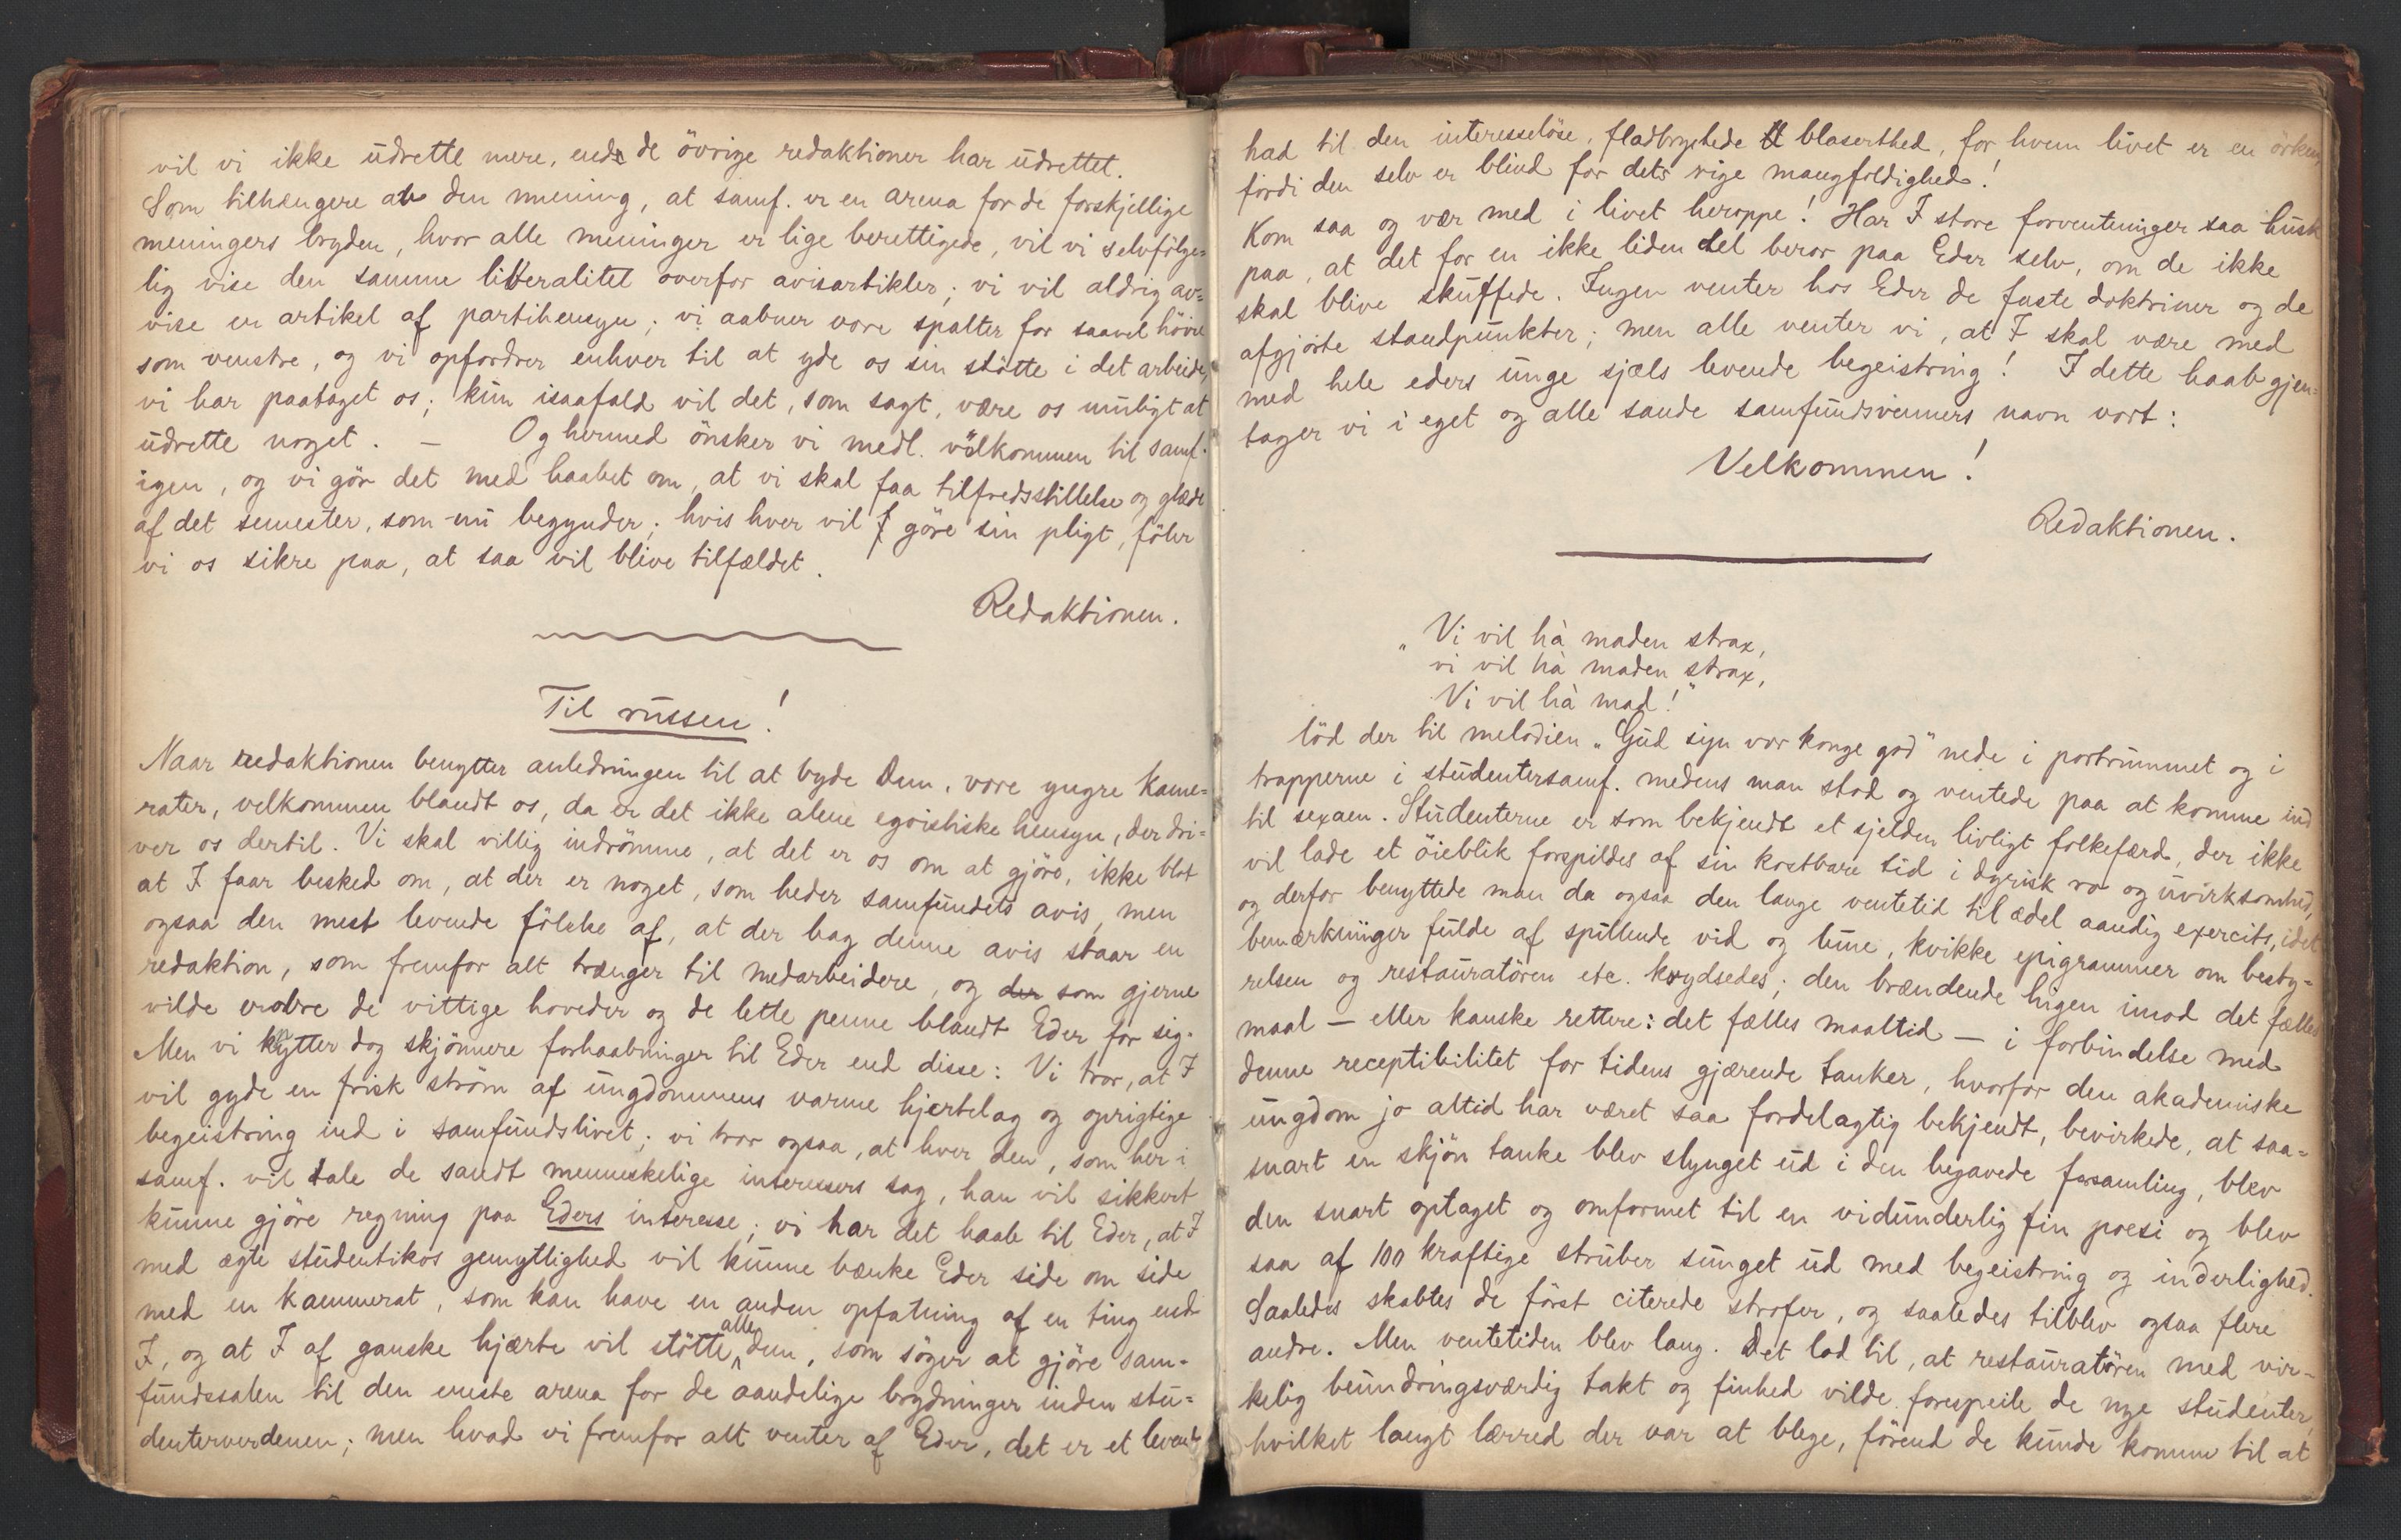 vil vi ikke udrette mere, end de övrige redaktioner har udrettet.
Som tilhængere av den mening, at samf. er en arena for de forskjellige
meningers bryden, hvor alle meninger er lige berettigede, vil vi selvfölge=
lig vise den samme liberalitet overfor avisartikler; vi vil aldrig av=
vise en artikel af partihensyn; vi aabner vore spalter for saavel höire
som venstre, og vi opfordrer enhver til at yde os sin stötte i det arbeide,
vi har paataget os; kun isaafald vil det, som sagt, være os muligt at
udrette noget. — Og hermed önsker vi medl. velkommen til samf.
igen, og vi gör det med haabet om, at vi skal faa tilfredsstillelse og glæde
af det semester, som nu begynder; hvis hver vil göre sin pligt, föler
vi os sikre paa, at saa vil blive tilfældet.
Redaktionen.
Til russen!
Naar redaktionen benytter anledningen til at byde Dem, vore yngre kame=
rater, velkommen blandt os, da er det ikke alene egoistiske hensyn, der dri=
ver os dertil. Vi skal villig indrömme, at det er os om at gjöre, ikke blot
at I faar besked om, at der er noget, som heder samfundets avis, men
ogsaa den mest levende fölelse af, at der bag denne avis staar en
redaktion, som fremfor alt trænger til medarbeidere, og der som gjerne
vilde erobre de vittige hoveder og de lette penne blandt Eder for sig.
Men vi knytter dog skjönnere forhaabninger til Eder end disse: Vi tror, at I
vil gyde en frisk ström af ungdommens varme hjertelag og oprigtige
begeistring ind i samfundslivet; vi tror ogsaa, at hver den, som her i
samf. vil tale de sandt menneskelige interessers sag, han vil sikkert
kunne gjöre regning paa Eders interesse; vi har det haab til Eder, at I
med ægte studentikos gemytlighed vil kunne bænke Eder side om side
med en kammerat, som kan have en anden opfatning af en ting end
I, og at I af ganske hjærte vil stötte alle dem, som söger at gjöre sam=
fundssalen til den eneste arena for de aandelige brydninger inden stu=
denterverdenen; men hvad vi fremfor alt venter af Eder, det er et levende
had til den interesselöse, fladbrystede blaserthed, for hvem livet er en örken,
fördi den selv er blind for dets rige mangfoldighed!
Kom saa og vær med i livet heroppe! Har I store forventninger saa husk
paa, at det for en ikke liden del beror paa Eder selv, om de ikke
skal blive skuffede. Ingen venter hos Eder de faste doktriner og de
afgjorte standpunkter; men alle venter vi, at I skal være med
med hele eders unge sjæls levende begeistring! I dette haab gjen=
tager vi i eget og alle sande samfundsvenners navn vort:
Velkommen!
Redaktionen.
„Vi vil hà maden strax,
vi vil hà maden strax,
Vi vil hà mad!"
löd der til melodien „Gud sign vor konge god" nede i portrummet og i
trapperne i studentersamf. medens man stod og ventede paa at komme ind
til sexaen. Studenterne er som bekjendt et sjelden livligt folkefærd, der ikke
vil lade et öieblik forspildes af sin kostbare tid i dyrisk ro og uvirksomhed,
og derfor benyttede man da ogsaa den lange ventetid til ædel aandig exercits, idet
bemærkninger fulde af spillende vid og lune, kvikke epigrammer om besty=
relsen og restauratören etc. krydsedes; den brændende higen imod det fælles
maal — eller kanske rettere: det fælles maaltid — i forbindelse med
denne receptibilitet for tidens gjærende tanker, hvorfor den akademiske
ungdom jo altid har været saa fordelagtig bekjendt, bevirkede, at saa=
snart en skjön tanke blev slynget ud i den begavede forsamling, blev
den snart optaget og omformet til en vidunderlig fin poesi og blev
saa af 100 kraftige struber sunget ud med begeistring og inderlighed.
Saaledes skabtes de först citerede strofer, og saaledes tilblev ogsaa flere
andre. Men ventetiden blev lang. Det lod til, at restauratören med vir=
kelig beundringsværdig takt og finhed vilde forespeile de nye studenter,
hvilket langt lærred der var at blege, förend de kunde komme til at